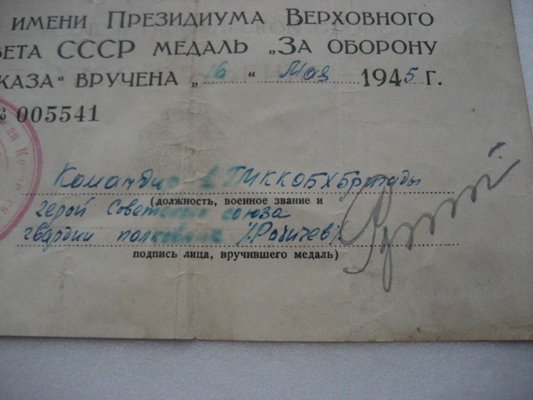 ИМЕНИ ПРЕЗИДИУМА ВЕРХОВНОГО
ВЕТА СССР МЕДАЛЬ „ЗА ОБОРОНУ
КАЗА“ ВРУЧЕНА „16“ Мая 1945 г.
№ 005541
Командир
(должность, военное звание и
герой Советского союза
гвардии полковник
подпись лица, вручившего медаль)